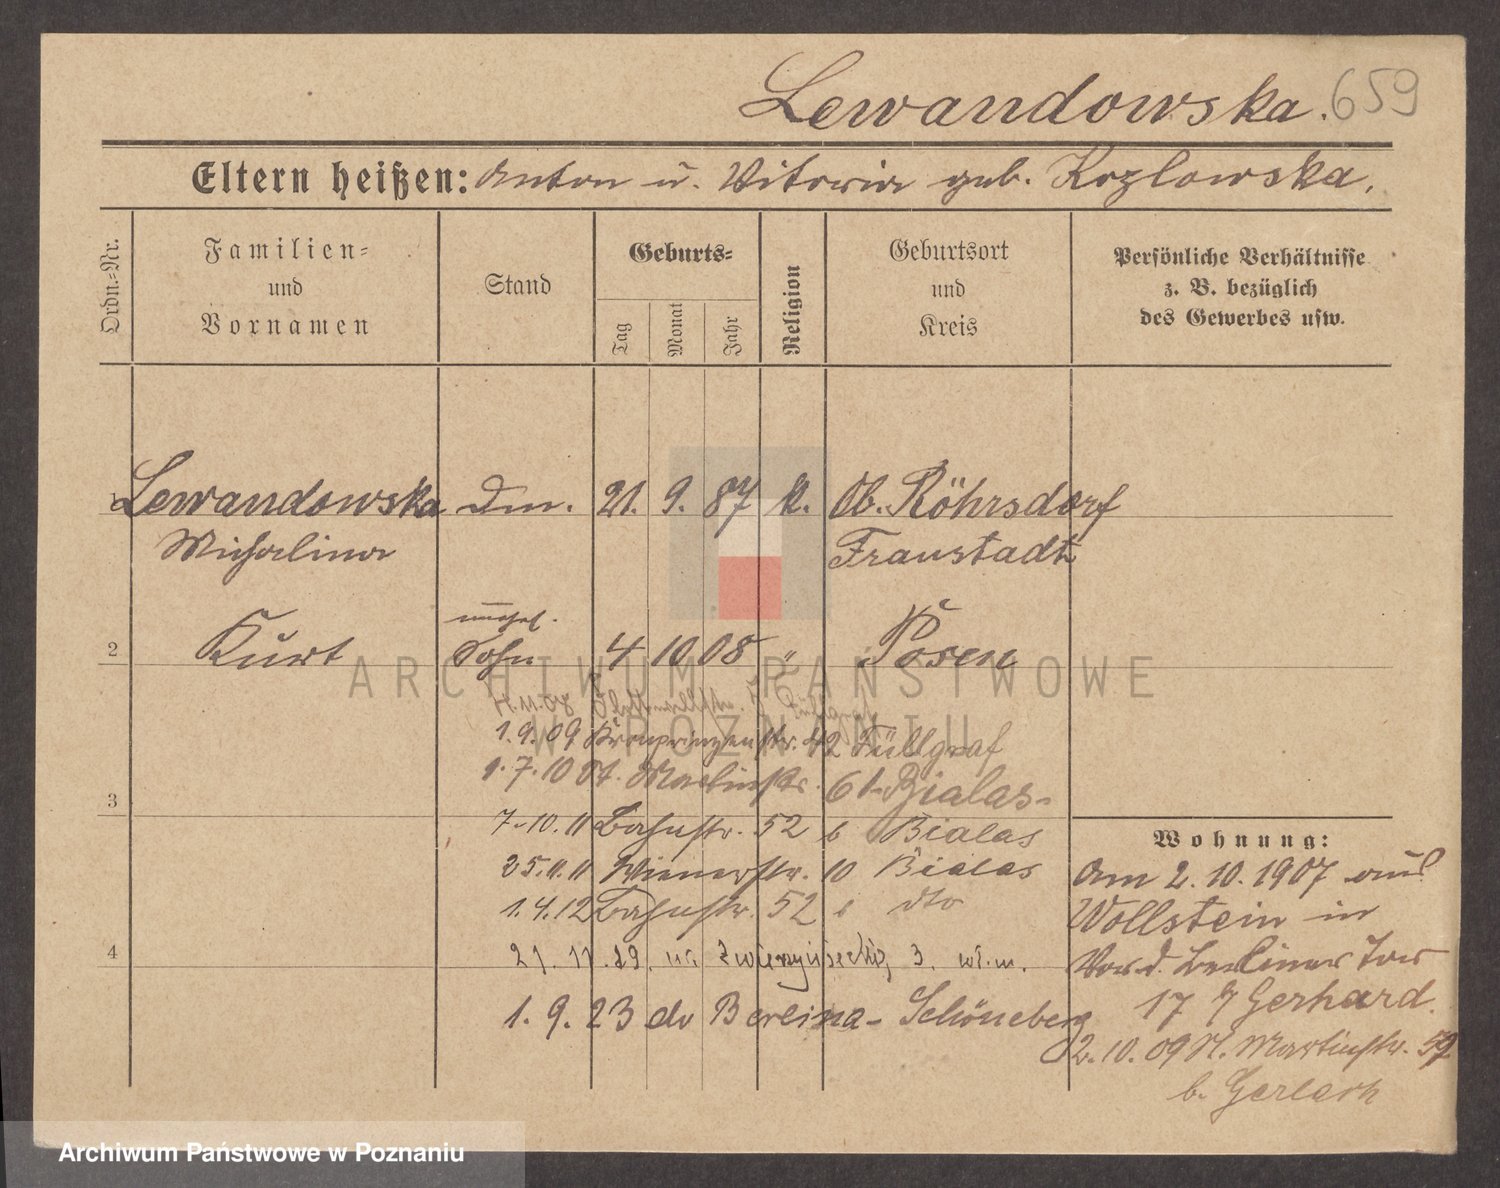 Lewandowska. 659
Eltern heißen: Anton u. Vitoria geb. Kozlowska,
Ordn.-Nr.
Familien-
und
Vornamen
Stand
Geburts-
Tag
Monat
Jahr
Religion
Geburtsort
und
Kreis
Persönliche Verhältnisse
z. B. bezüglich
des Gewerbes usw.
1 Lewandowska 21. 9. 87 k. Ob. Röhrsdorf
Michalina Fraustadt
2 Kurt Sohn 4 10 08 " Posen
4.11.08
1.9.09 Kronprinzenstr. 42 Füllgraf
1.7.10 St. Martinstr. 61 Bialas
3
7.10.11 Bahnstr. 52 b Bialas
25.11.11 Wienerstr. 10 Bialas
1.4.12 Bahnstr. 52 b dto
4
21. 11. 19. ul. 3. wł.m.
1. 9. 23 do Berlina-Schöneberg
Wohnung:
Am 2. 10. 1907 aus
Wollstein in
Vor d. Berliner Tor
17 b/ Gerhard.
2. 10. 09 St. Martinstr. 59
b. Gerlach
ARCHIWUM PAŃSTWOWE
W POZNANIU
Archiwum Państwowe w Poznaniu